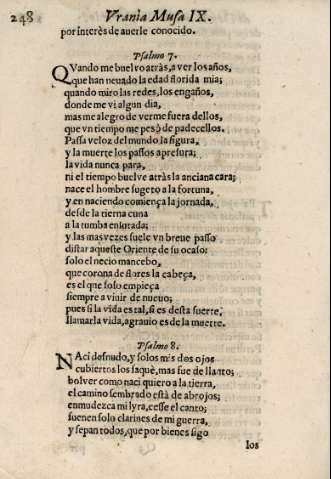 248 Vrania Musa IX.
por interès de auerle conocido.
Psalmo 7.
QVando me buelvo atràs, a ver los años,
que han nevado la edad florida mia;
quando miro las redes, los engaños,
donde me vi algun dia,
mas me alegro de verme fuera dellos,
que vn tiempo me pesò de padecellos.
Passa veloz del mundo la figura,
y la muerte los passos apresura;
la vida nunca para,
ni el tiempo buelve atràs la anciana cara;
nace el hombre sugeto a la fortuna,
y en naciendo comiença la jornada,
desde la tierna cuna
a la tumba enlutada;
y las mas vezes suele vn breue passo
distar aqueste Oriente de su ocaso:
solo el necio mancebo,
que corona de flores la cabeça,
es el que solo empieça
siempre a viuir de nueuo;
pues si la vida es tal, si es desta suerte,
llamarla vida, agrauio es de la muerte.
Psalmo 8.
NAci desnudo, y solos mis dos ojos
cubiertos los saquè, mas fue de llanto;
bolver como nací quiero a la tierra,
el camino sembrado està de abrojos;
enmudezca mi lyra, cesse el canto;
suenen solo clarines de mi guerra,
y sepan todos, que por bienes sigo
los